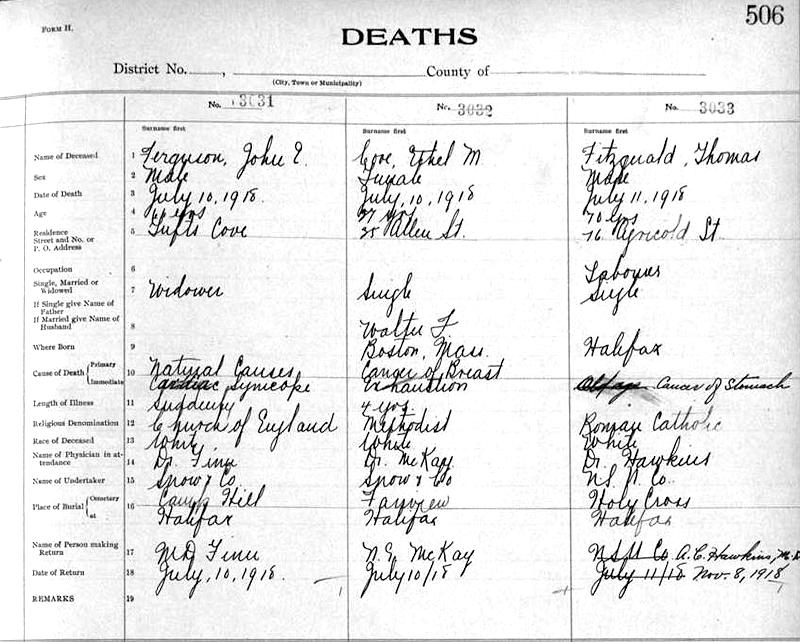 506
FORM H.
DEATHS
District No. , County of
(City, Town or Municipality)
No. 3031 No. 3032 No. 3033
Surname first Surname first Surname first
Name of Deceased 1 Ferguson, John E. Cove, Ethel M Fitzgerald, Thomas
Sex 2 Male Female Male
Date of Death 3 July 10, 1918. July, 10, 1918 July 11, 1918
Age 4 yrs 37 yrs 70 yrs
Residence
Street and No. or
P. O. Address 5 Tufts Cove 25 Allen St. 76 Agricola St
Occupation 6 Labourer
Single, Married or
Widowed 7 Widower Single Single
If Single give Name of
Father
If Married give Name of
Husband 8 Walter F.
Where Born 9 Boston, Mass. Halifax
Cause of Death Primary 10 Natural Causes Cancer of Breast
Immediate Cardiac Synicope Exhaustion Old age Cancer of Stomach
Length of Illness 11 Suddenly 4 yrs.
Religious Denomination 12 Church of England Methodist Roman Catholic
Race of Deceased 13 White White White
Name of Physician in at-
tendance 14 Dr. Finn Dr. McKay Dr. Hawkins
Name of Undertaker 15 Snow & Co. Snow & Co N.S. U. Co.
Place of Burial Cemetery 16 Camp Hill Fairview Holy Cross
at Halifax Halifax Halifax
Name of Person making
Return 17 M.D. Finn N.E. McKay N.S.U Co A.C. Hawkins, M.D.
Date of Return 18 July, 10, 1918. July 10/18 July 11/18 Nov. 8, 1918
REMARKS 19